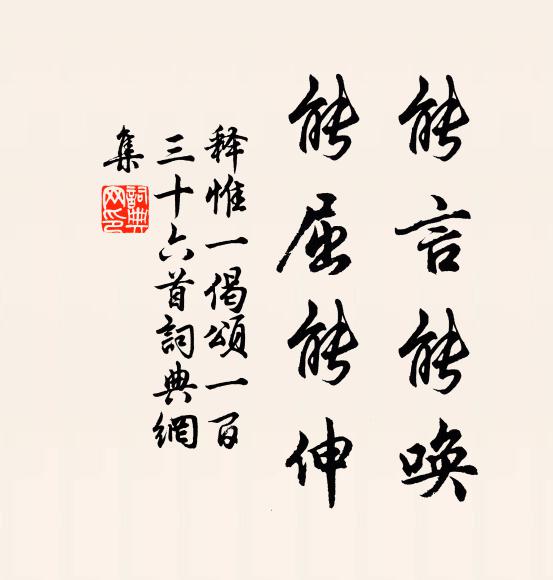 能言能唤
能屈能伸
释惟一偈頌一百
三十六首詞典網
集
詞典
网印